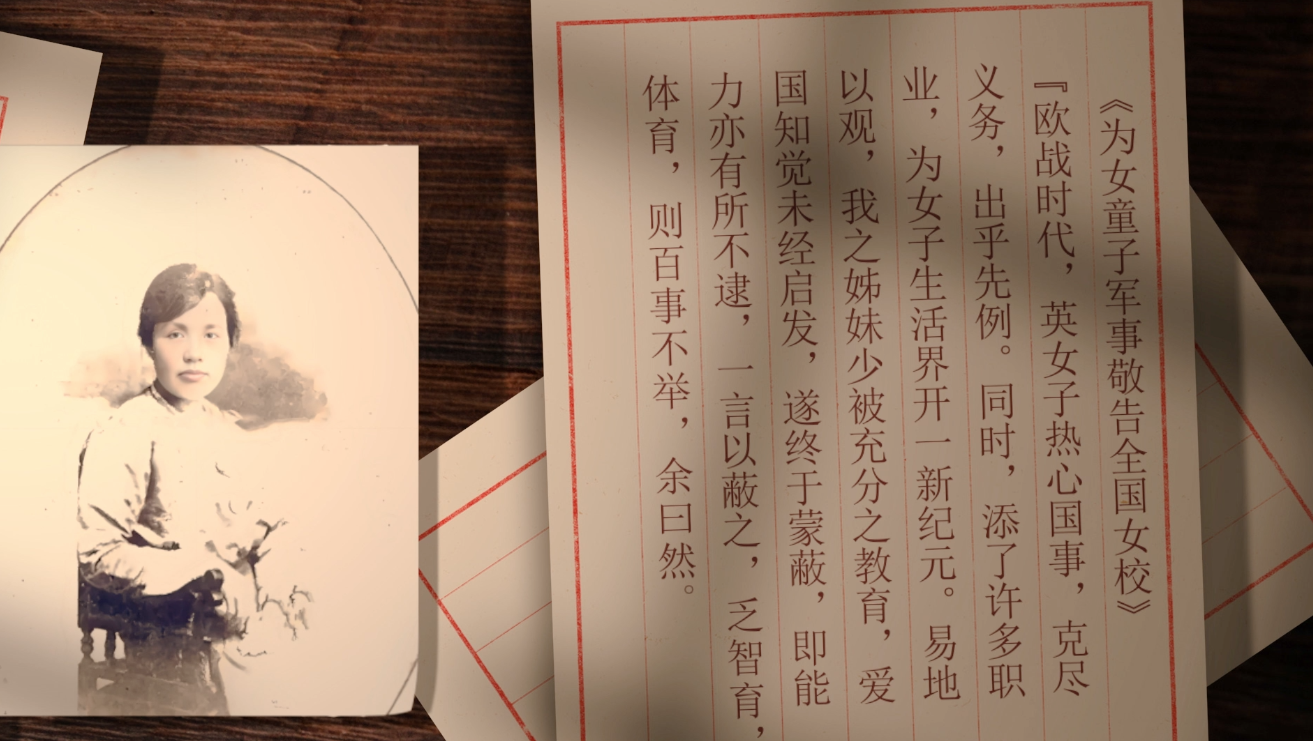 《为女童子军事敬告全国女校》
『欧战时代，英女子热心国事，克尽
义务，出乎先例。同时，添了许多职
业，为女子生活界开一新纪元。易地
以观，我之姊妹少被充分之教育，爱
国知觉未经启发，遂终于蒙蔽，即能
力亦有所不逮，一言以蔽之，乏智育，
体育，则百事不举，余曰然。